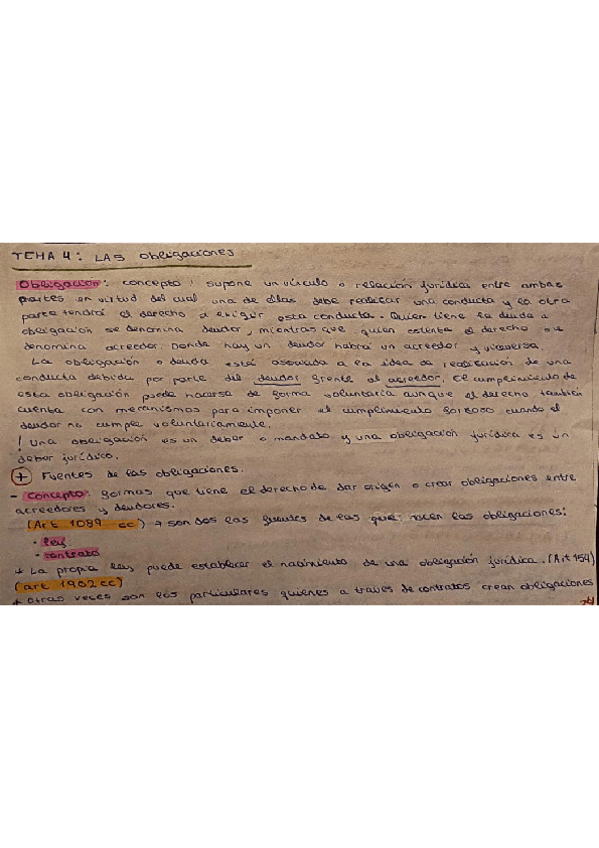 TEMA 4: LAS obligaciones
Obligación: concepto! supone un vínculo o relación jurídica entre ambas
partes en virtud del cual una de ellas debe realizar una conducta y la otra
parte tendrá el derecho a exigir esta conducta. Quien tiene la deuda u
obligación se denomina deudor, mientras que quien ostenta el derecho se
denomina acreedor. Donde hay un deudor habrá un acreedor y viceversa.
La obligación o deuda está asociada a la idea de realización de una
conducta debida por parte del deudor frente al acreedor. El cumplimiento de
esta obligación puede hacerse de forma voluntaria aunque el derecho también
cuenta con mecanismos para imponer el cumplimiento forzoso cuando el
deudor no cumple voluntariamente.
! Una obligación es un deber o mandato y una obligación jurídica es un
deber jurídico.
+ Fuentes de las obligaciones.
- Concepto: formas que tiene el derecho de dar origen o crear obligaciones entre
acreedores y deudores.
(Art 1089 cc) → son dos las fuentes de las que nacen las obligaciones:
· ley
· contrato
* La propia ley puede establecer el nacimiento de una obligación jurídica. (Art 154)
(art 1902 cc)
* Otras veces son los particulares quienes a través de contratos crean obligaciones